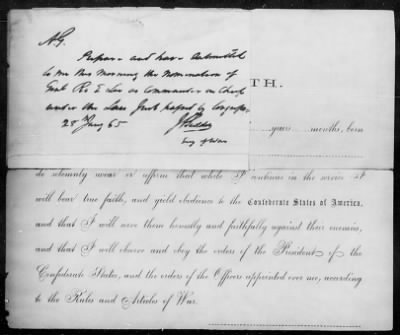 A.G.
Prepare and have submitted
to me this morning the nomination of
Genl Ro E Lee as Commander in Chief
under the Law just passed by Congress
28 Jany 65
Secy of War
TH.
years months, born
do solemnly swear or affirm that while I continue in the service I
will bear true faith, and yield obedience to the Confederate States of America,
and that I will serve them honestly and faithfully against their enemies,
and that I will observe and obey the orders of the President of the
Confederate States, and the orders of the Officers appointed over me, according
to the Rules and Articles of War.